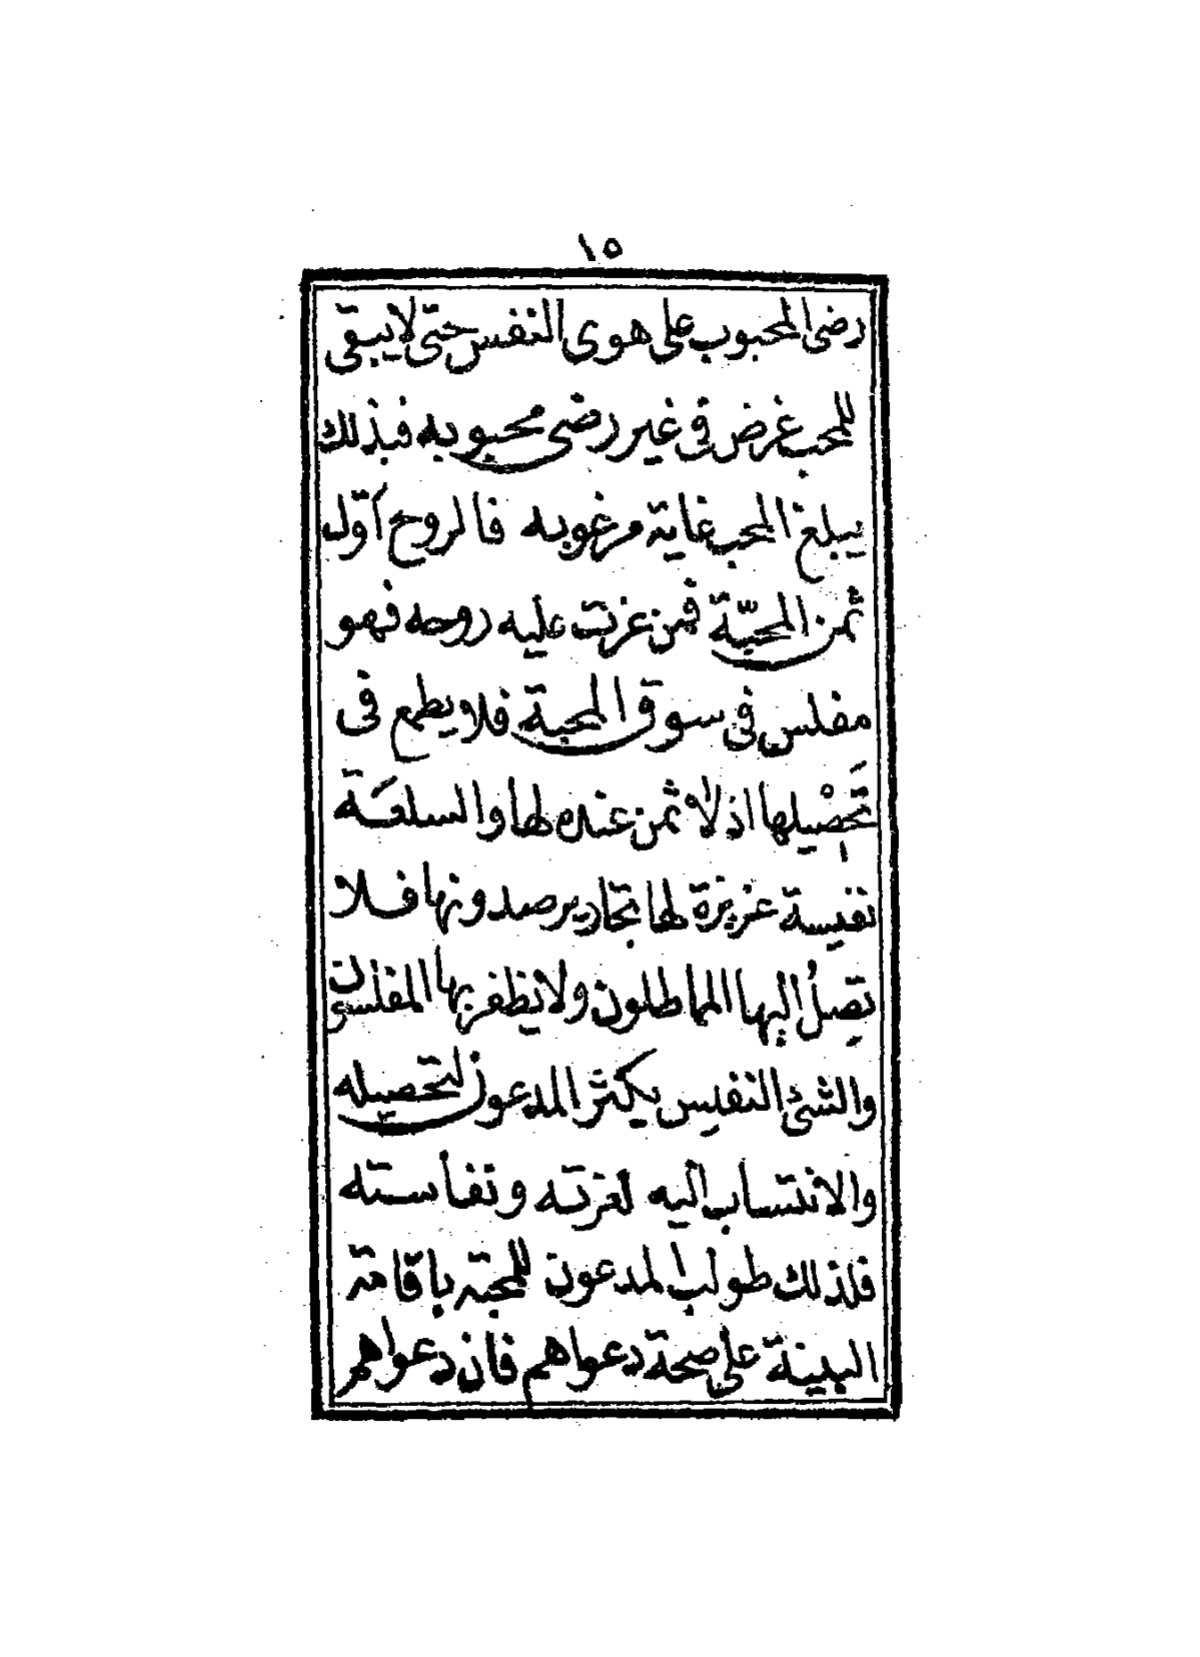 ١٥
رضى المحبوب على هوى النفس حتى لا يبقى
للمحب غرض في غير رضى محبوبه فبذلك
يبلغ المحب غاية مرغوبه فالروح أوّل
ثمن المحبّة فمن عزت عليه روحه فهو
مفلس في سوق المحبة فلا يطمع في
تَحصْيلها اذ لا ثمن عنده لها والسلعَة
نفيسة عزيزة لها تجار يرصدونها فلا
تصلُ اليها المماطلون ولا يظفر بها المفلسون
والشئ النفيس يكثر المدعون لتحصيله
والانتساب اليه لعزته ونفاسته
فلذلك طولب المدعون للمحبة باقامة
البينة على صحة دعواهم فان دعواهم